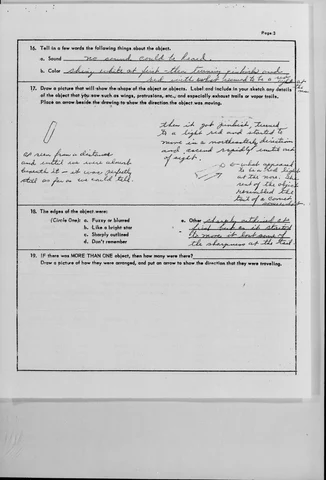 Page 2
16. Tell in a few words the following things about the object.
a. Sound no sound could be heard.
b. Color shiny white at first - then turning pinkish and
red with what seemed to be a red light at the nose
17. Draw a picture that will show the shape of the object or objects. Label and include in your sketch any details
of the object that you saw such as wings, protrusions, etc., and especially exhaust trails or vapor trails.
Place an arrow beside the drawing to show the direction the object was moving.
then it got pinkish, turned
to a light red and started to
move in a northeasterly direction
and ascend rapidly until out
of sight.
as seen from a distance
and until we were almost
beneath it - it was perfectly
still as far as we could tell.
← what appeared
to be a red light
at the nose. The
rest of the object
resembled the
tail of a comet
somewhat.
18. The edges of the object were:
(Circle One): a. Fuzzy or blurred
b. Like a bright star
c. Sharply outlined
d. Don't remember
e. Other sharply outlined at
first but as it started
to move it lost some of
the sharpness at the tail.
19. IF there was MORE THAN ONE object, then how many were there?
Draw a picture of how they were arranged, and put an arrow to show the direction that they were traveling.